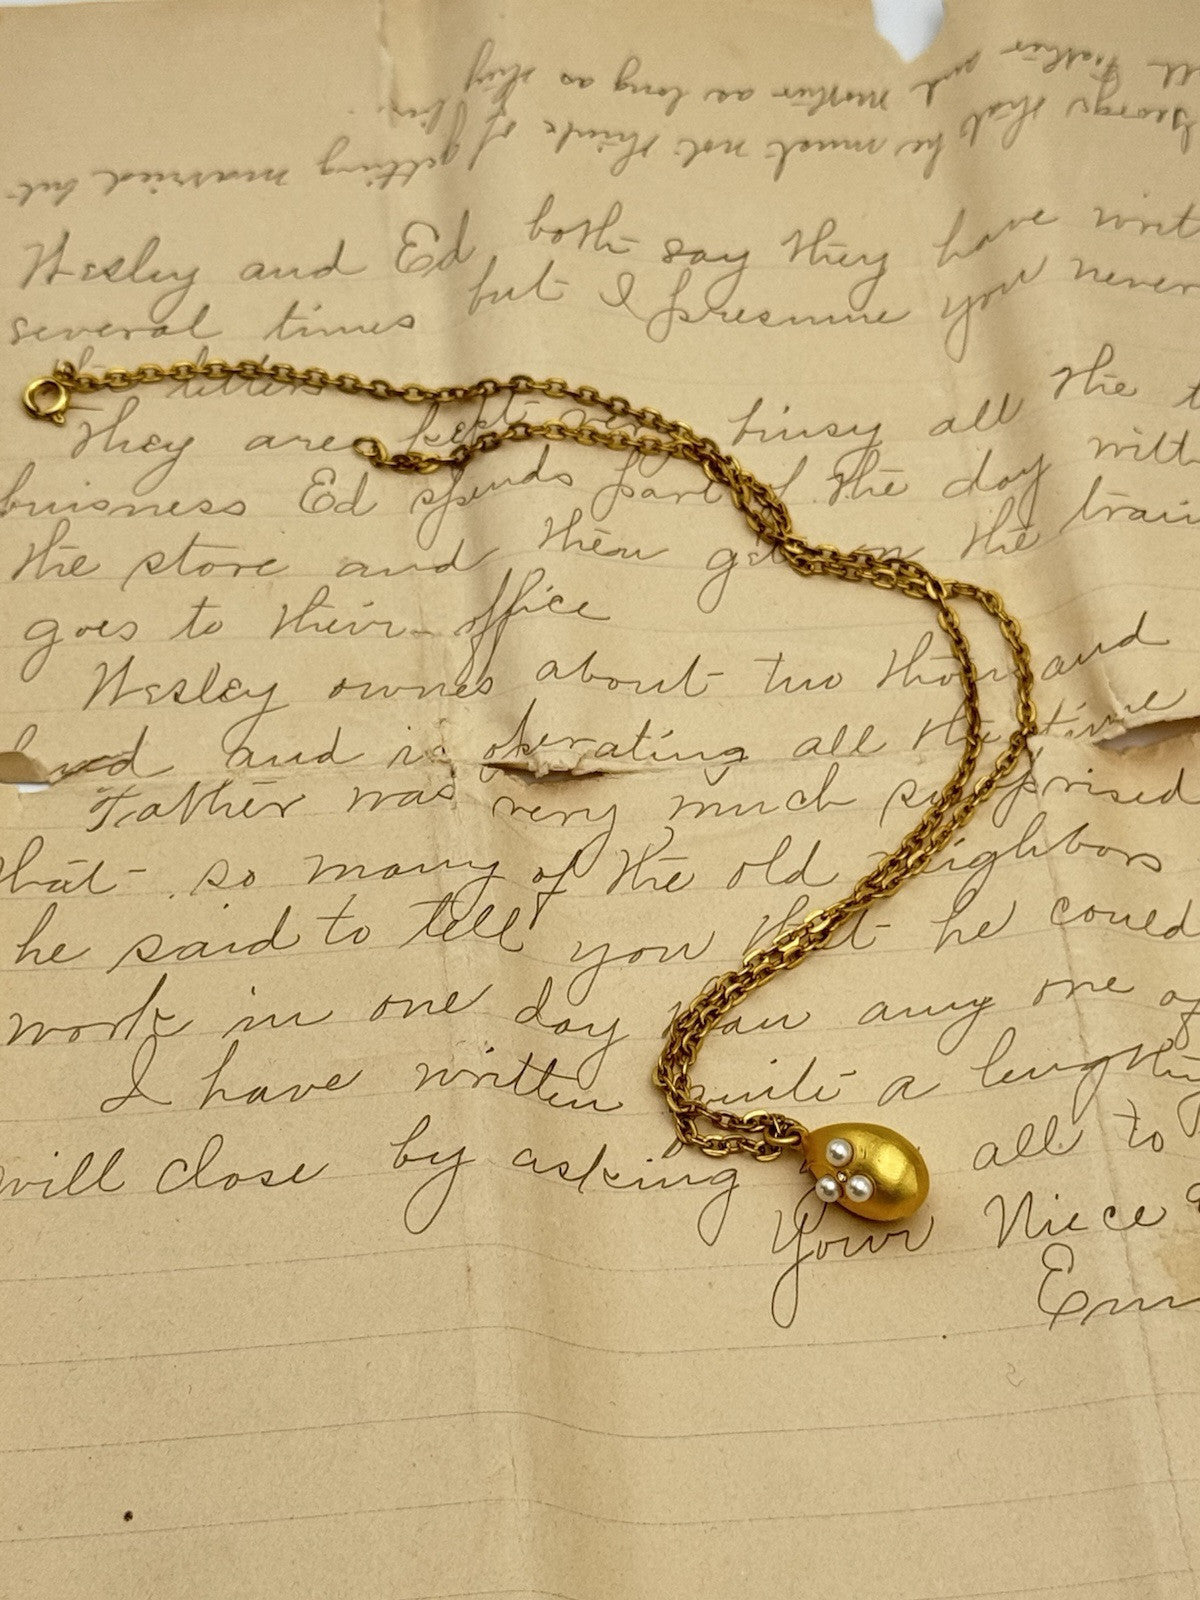 tell Father and Mother as long as they
George that he must not think of
getting married but
Wesley and Ed both say they have writ
several times but I presume you never
letters
They are kept very busy all the t
buisness Ed spends part of the day with
the store and then gets on the train
goes to their office
Wesley ownes about two thousand
and is operating all the time
Father was very much surprised
that so many of the old neighbors
he said to tell you that he could
work in one day than any one of
I have written quite a lengthy
will close by asking all to
Your Niece
Em